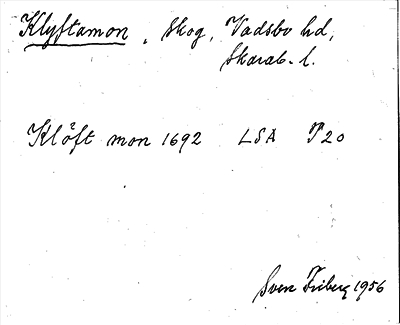 Klyftamon, Skog, Vadsbo hd,
Skarab. l.
Klöft mon 1692 LSA P20
Sven Friberg 1956